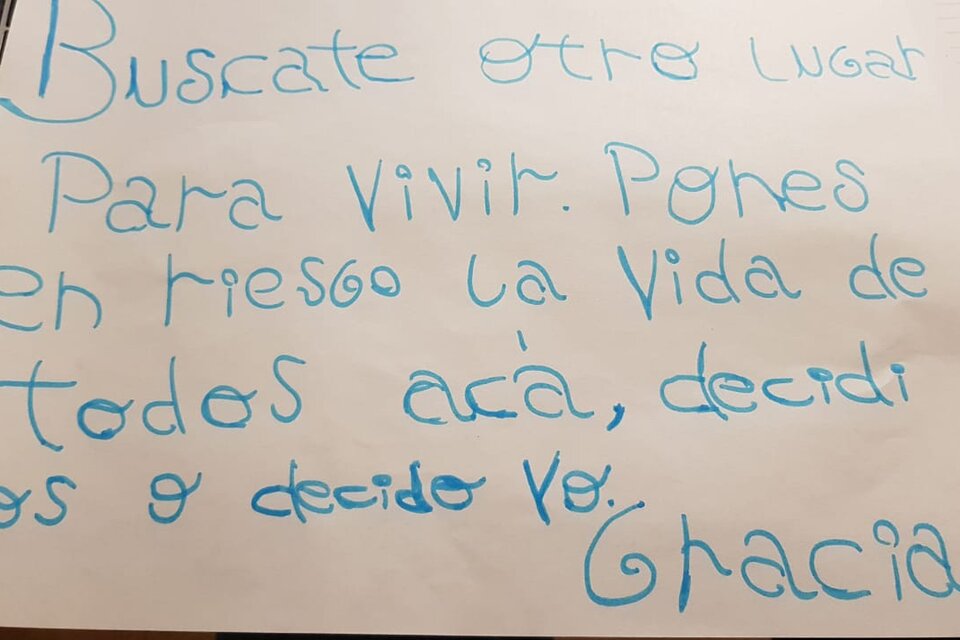 Buscate otro lugar
Para vivir. Pones
en riesgo la vida de
todos acá, decidi
os o decido yo.
Gracia